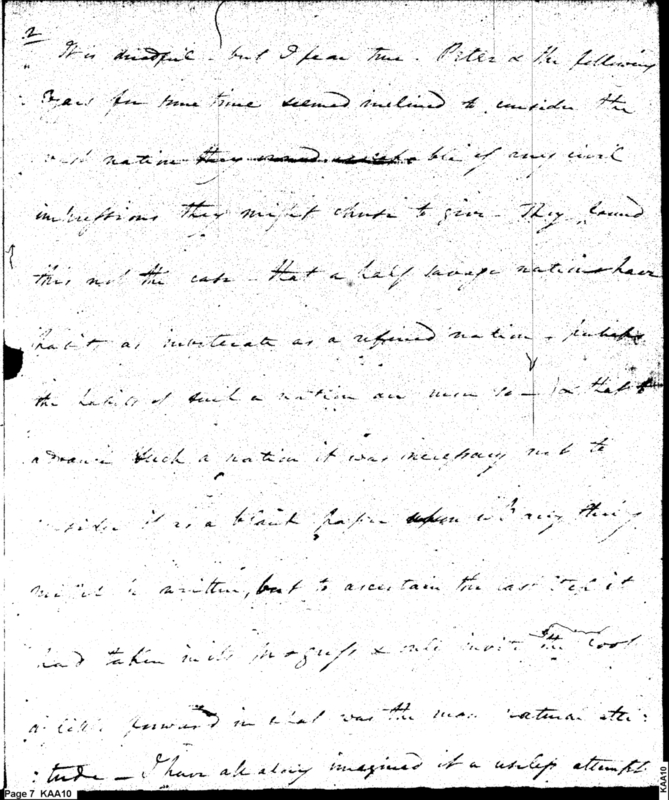 2
It is dreadful - but I fear true. Peter & the following
for some time seemed inclined to consider the
nation they ble of any civil
impressions they might chuse to give - They found
this not the case - that a half savage nation have
habits as inveterate as a refined nation & perhaps
the habits of such a nation are more so - & that to
advance such a nation it was necessary not to
consider it as a blank paper upon wh any thing
might be written, but to ascertain the last step it
had taken in its progress & only invite the
a little forward in what was the more natural atti:
:tude - I have all along imagined it a useless attempt
Page 7 KAA10
KAA10